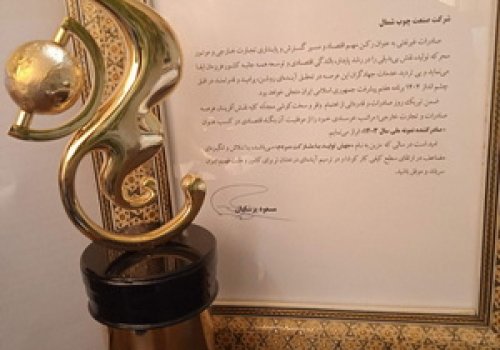 شرکت صنعت چوب شمال
صادرات غیرنفتی به عنوان رکن مهم اقتصاد و مسیر گسترش و پایداری تجارت خارجی و موتور
محرکه تولید، نقش بی‌بدیلی را در رشد پایدار، بالندگی اقتصادی و توسعه همه جانبه کشور عزیزمان ایفا
می‌نماید و بی تردید، خدمات جهادگران این عرصه در تحقق آینده‌ای روشن، و قدرتمند در افق
چشم انداز ۱۴۰۴ برنامه هفتم پیشرفت جمهوری اسلامی ایران متجلی خواهد بود.
ضمن تبریک روز صادرات و قدردانی از اهتمام وافر و سخت کوشی مجدانه کلیه نقش آفرینان عرصه
صادرات و تجارت خارجی؛ مراتب خود را از موفقیت آن بنگاه اقتصادی در کسب عنوان
«صادرکننده نمونه ملی سال ۱۴۰۳» ابراز می‌نمایم.
امید است در سالی که مزین به نام «جهش تولید با مشارکت مردم» می‌باشد، با تلاش و انگیزه‌ای
مضاعف در ارتقای سطح کیفی کار و در ترسیم آینده‌ای درخشان تر برای کشور و ملت ایران
سربلند و موفق باشید.
مسعود پزشکیان